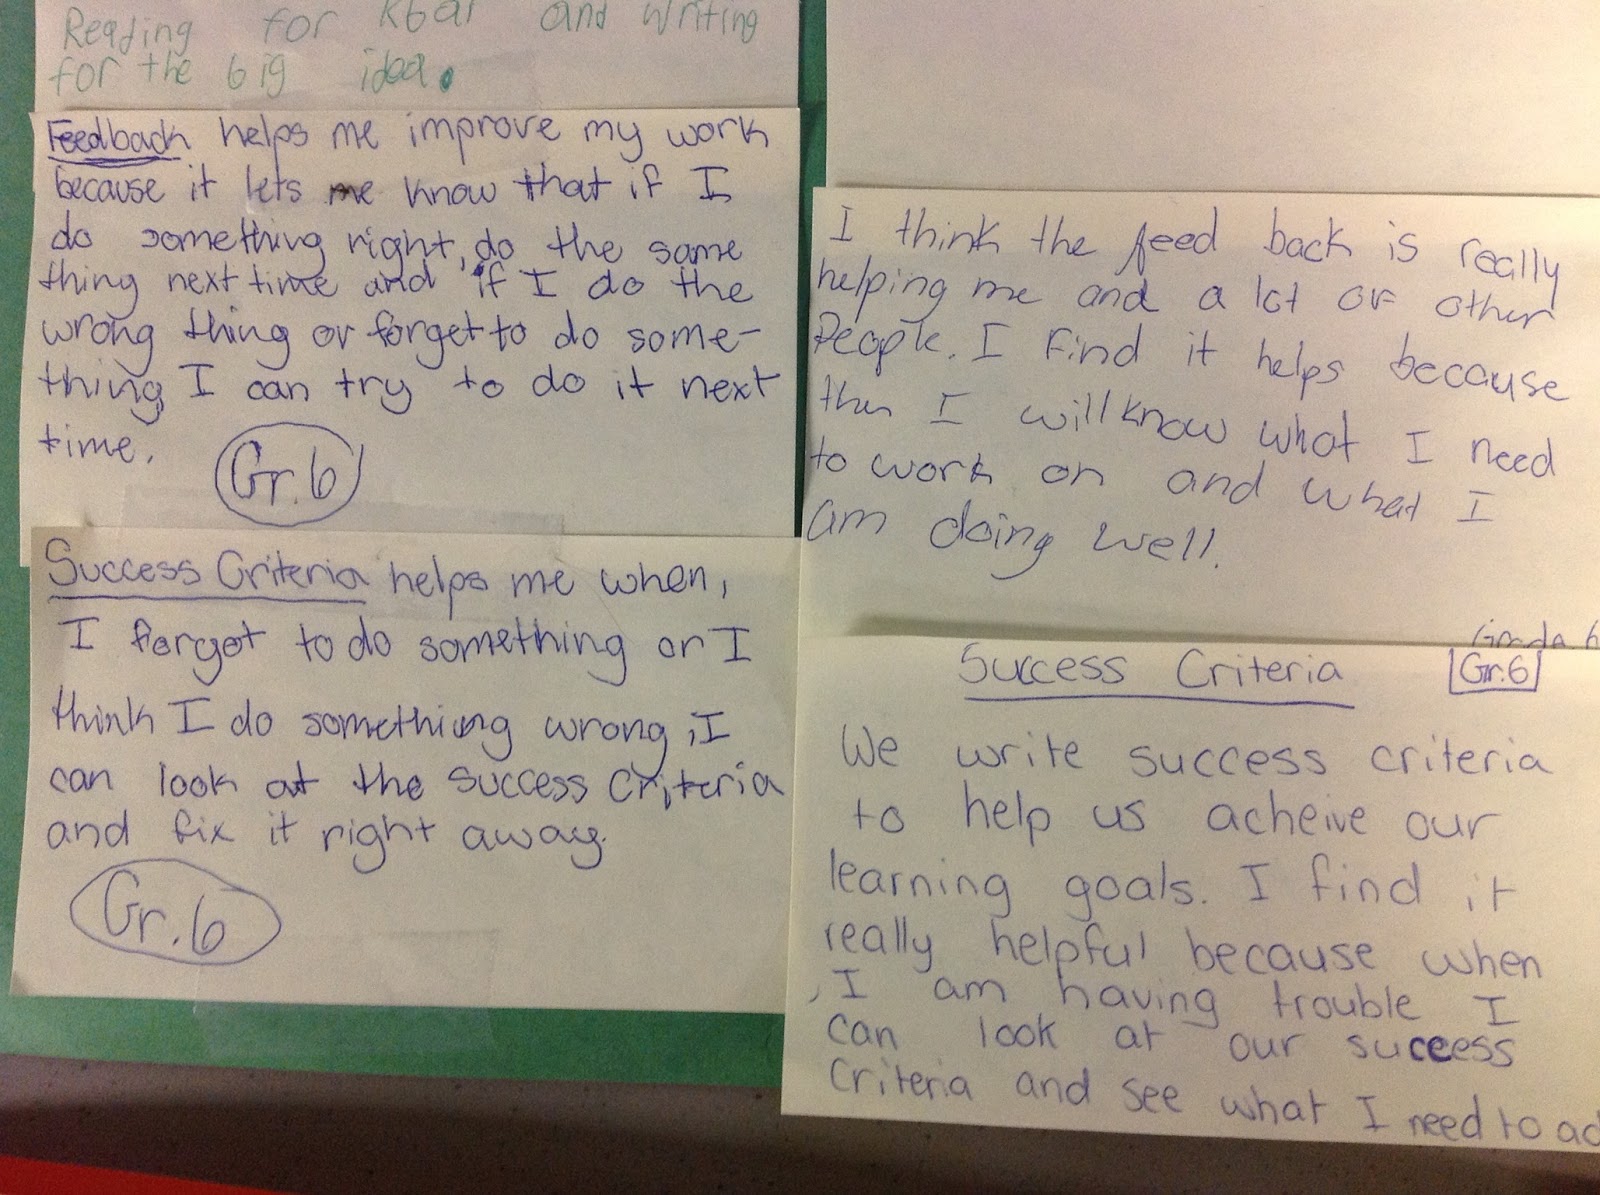 Reading for and writing
for the big idea.
Feedback helps me improve my work
because it lets me know that if I
do something right, do the same
thing next time and if I do the
wrong thing or forget to do some-
thing, I can try to do it next
time.
Gr.6
Success Criteria helps me when,
I forget to do something or I
think I do something wrong, I
can look at the success criteria
and fix it right away.
Gr.6
I think the feed back is really
helping me and a lot of other
People. I find it helps because
then I will know what I need
to work on and what I
am doing well.
Grade 6
Success Criteria Gr.6
We write success criteria
to help us acheive our
learning goals. I find it
really helpful because when
I am having trouble I
can look at our success
criteria and see what I need to